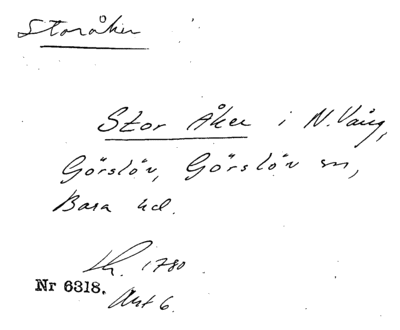 Storåker
Stor Åker i N. Vång,
Görslöv, Görslöv sn,
Bara hd.
Lh. 1780
Nr 6318.
Akt 6.